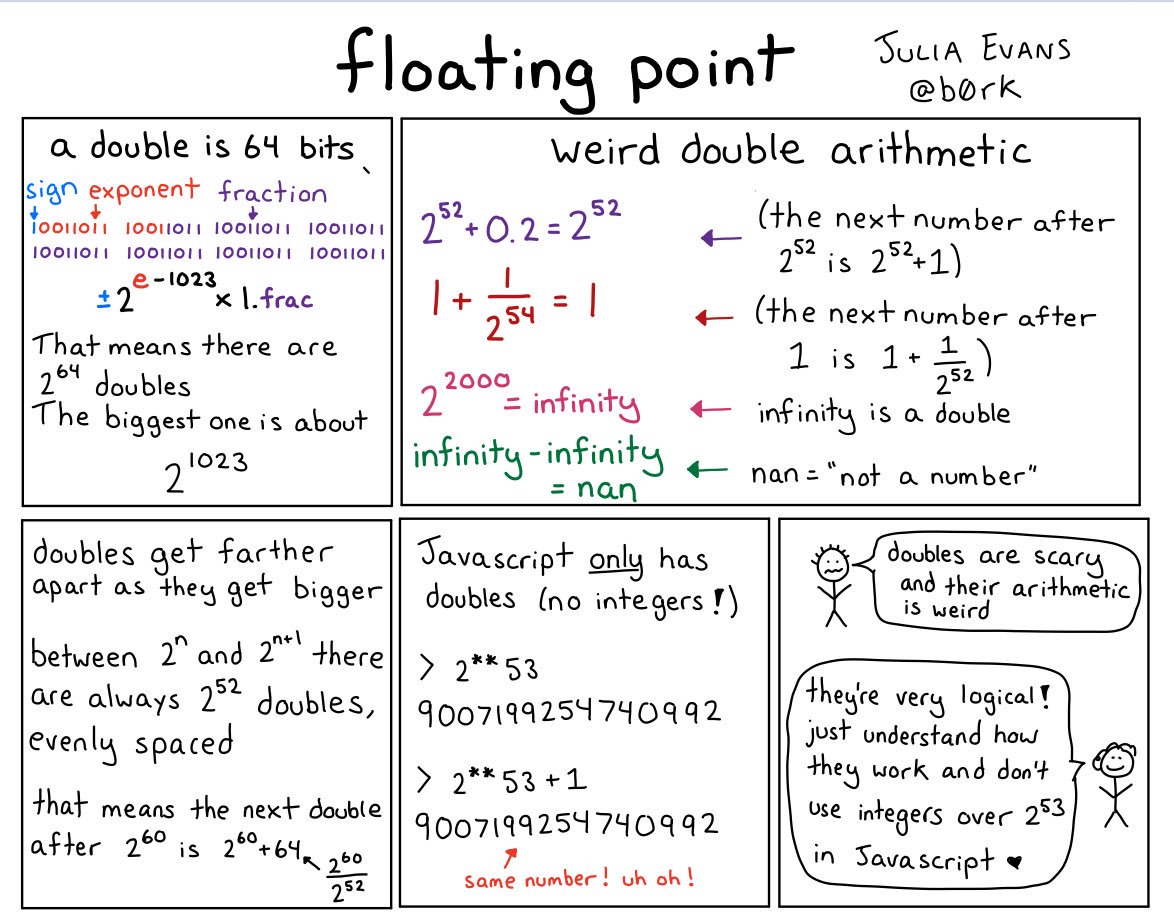 floating point
JULIA EVANS
@b0rk
a double is 64 bits
sign exponent fraction
10011011 10011011 10011011 10011011
10011011 10011011 10011011 10011011
±2^(e-1023) × 1.frac
That means there are
2^64 doubles
The biggest one is about
2^1023
weird double arithmetic
2^52 + 0.2 = 2^52 ← (the next number after
2^52 is 2^52+1)
1 + 1/2^54 = 1 ← (the next number after
1 is 1 + 1/2^52)
2^2000 = infinity ← infinity is a double
infinity - infinity
= nan ← nan = "not a number"
doubles get farther
apart as they get bigger
between 2^n and 2^(n+1) there
are always 2^52 doubles,
evenly spaced
that means the next double
after 2^60 is 2^60+64
2^60/2^52
Javascript only has
doubles (no integers!)
> 2**53
9007199254740992
> 2**53 + 1
9007199254740992
same number! uh oh!
doubles are scary
and their arithmetic
is weird
they're very logical!
just understand how
they work and don't
use integers over 2^53
in Javascript ♥